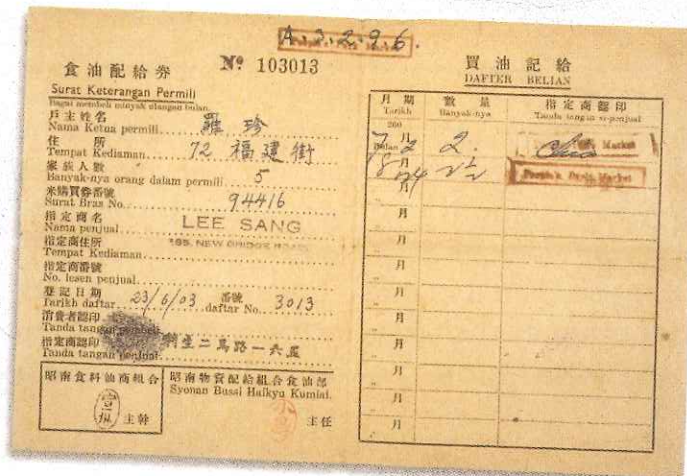 A.3.2.96.
食油配給券 Nº 103013
Surat Keterangan Permili
Bagai membeli minyak
戶主姓名
Nama Ketua permili 羅珍
住所
Tempat Kediaman 72 福建街
家族人數
Banyak-nya orang dalam permili 5
米購買券番號
Surat Bras No. 94416
指定商名
Nama penjual LEE SANG
指定商住所 195, NEW BRIDGE ROAD
Tempat Kediaman
指定商番號
No. lesen penjual
登記日期 番號
Tarikh daftar 23/6/03 daftar No. 3013
消費者認印
Tanda tangan
指定商認印
Tanda tangan penjual 利生二馬路一六五
昭南食料油商組合
主幹
昭南物資配給組合食油部
Syonan Bussi Haikyu Kumiai.
主任
買油記給
DAFTER BELIAN
月期 數量 指定商認印
Tarikh Banyak-nya Tanda tangan si-penjual
260
7 2 2. Market
Bulan
8 月 24 2½ People's Park Market
月
月
月
月
月
月
月
月
月
月